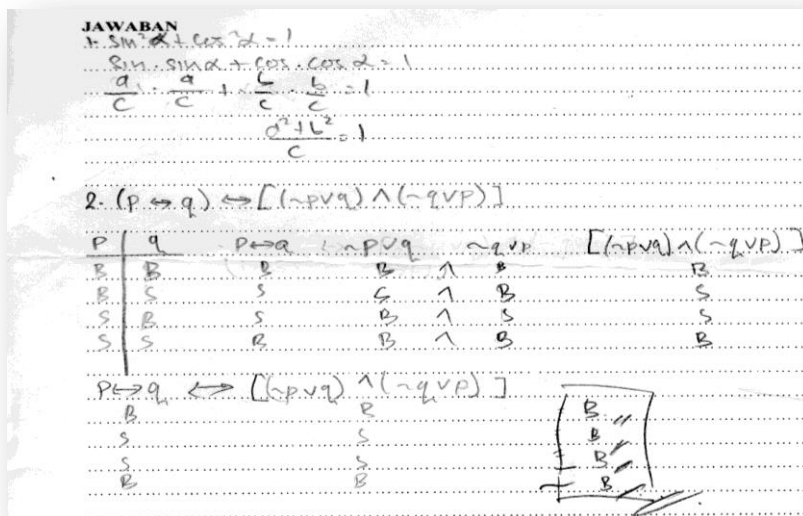 JAWABAN
1. sin²α + cos²α = 1
sin . sinα + cos . cos α = 1
a/c . a/c + b/c . b/c = 1
a² + b² / c = 1
2. (p ↔ q) ↔ [(~p∨q) ∧ (~q∨p)]
P q P↔q ~p∨q ~q∨p [(~p∨q) ∧ (~q∨p)]
B B B B ∧ B B
B S S S ∧ B S
S B S B ∧ S S
S S B B ∧ B B
P↔q ↔ [(~p∨q) ∧ (~q∨p)]
B B B
S S B
S S B
B B B